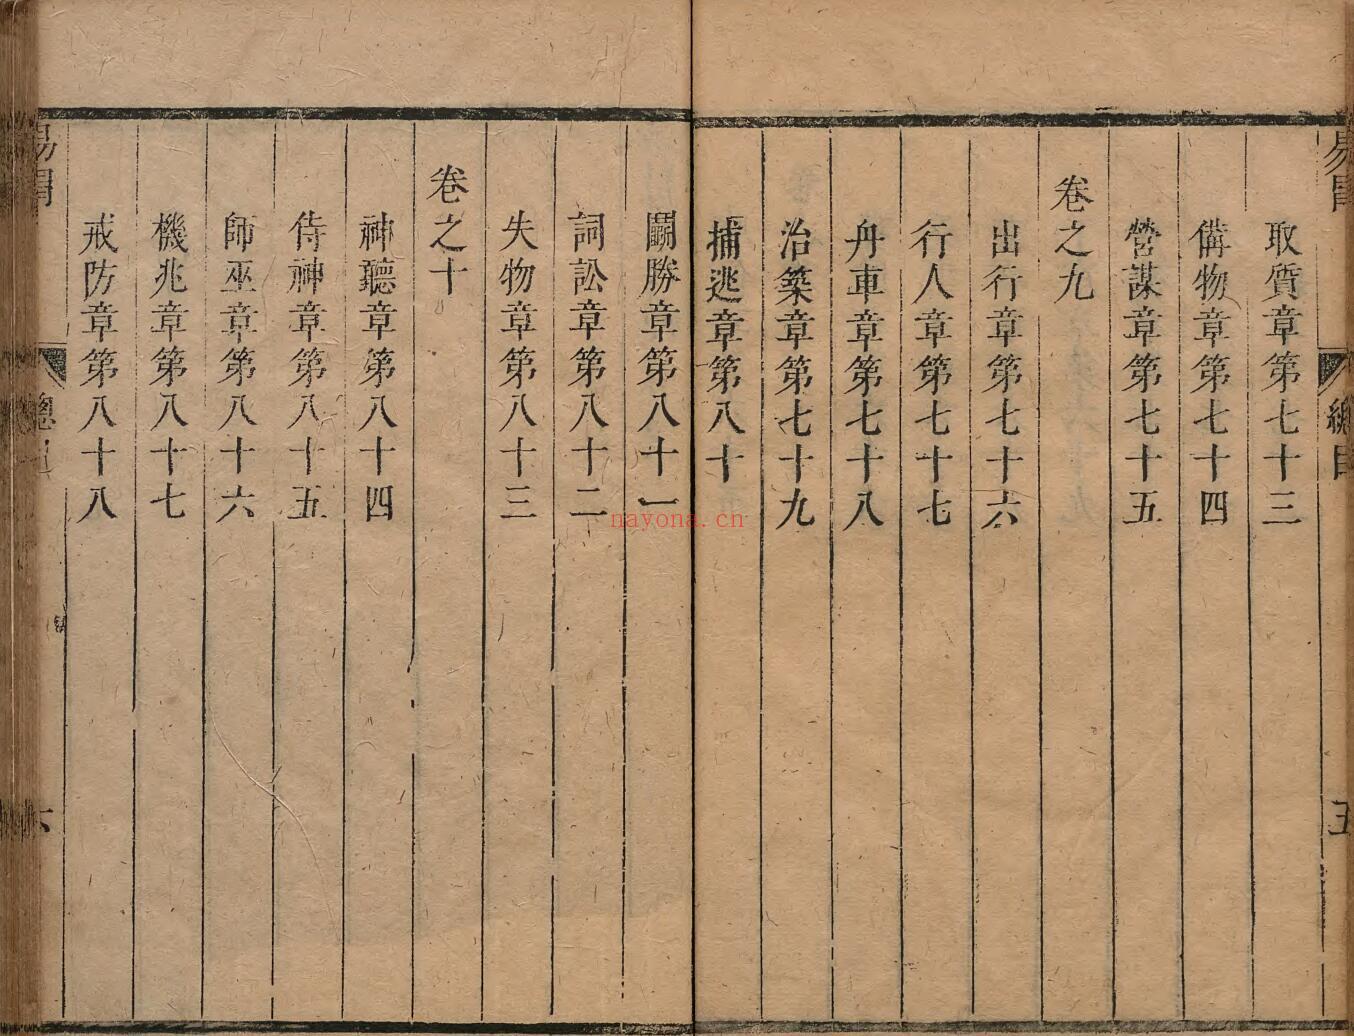 取質章第七十三
備物章第七十四
營謀章第七十五
卷之九
出行章第七十六
行人章第七十七
舟車章第七十八
治築章第七十九
捕逃章第八十
鬬勝章第八十一
詞訟章第八十二
失物章第八十三
卷之十
神聽章第八十四
侍神章第八十五
師巫章第八十六
機兆章第八十七
戒防章第八十八
總目
五
六
nayona.cn